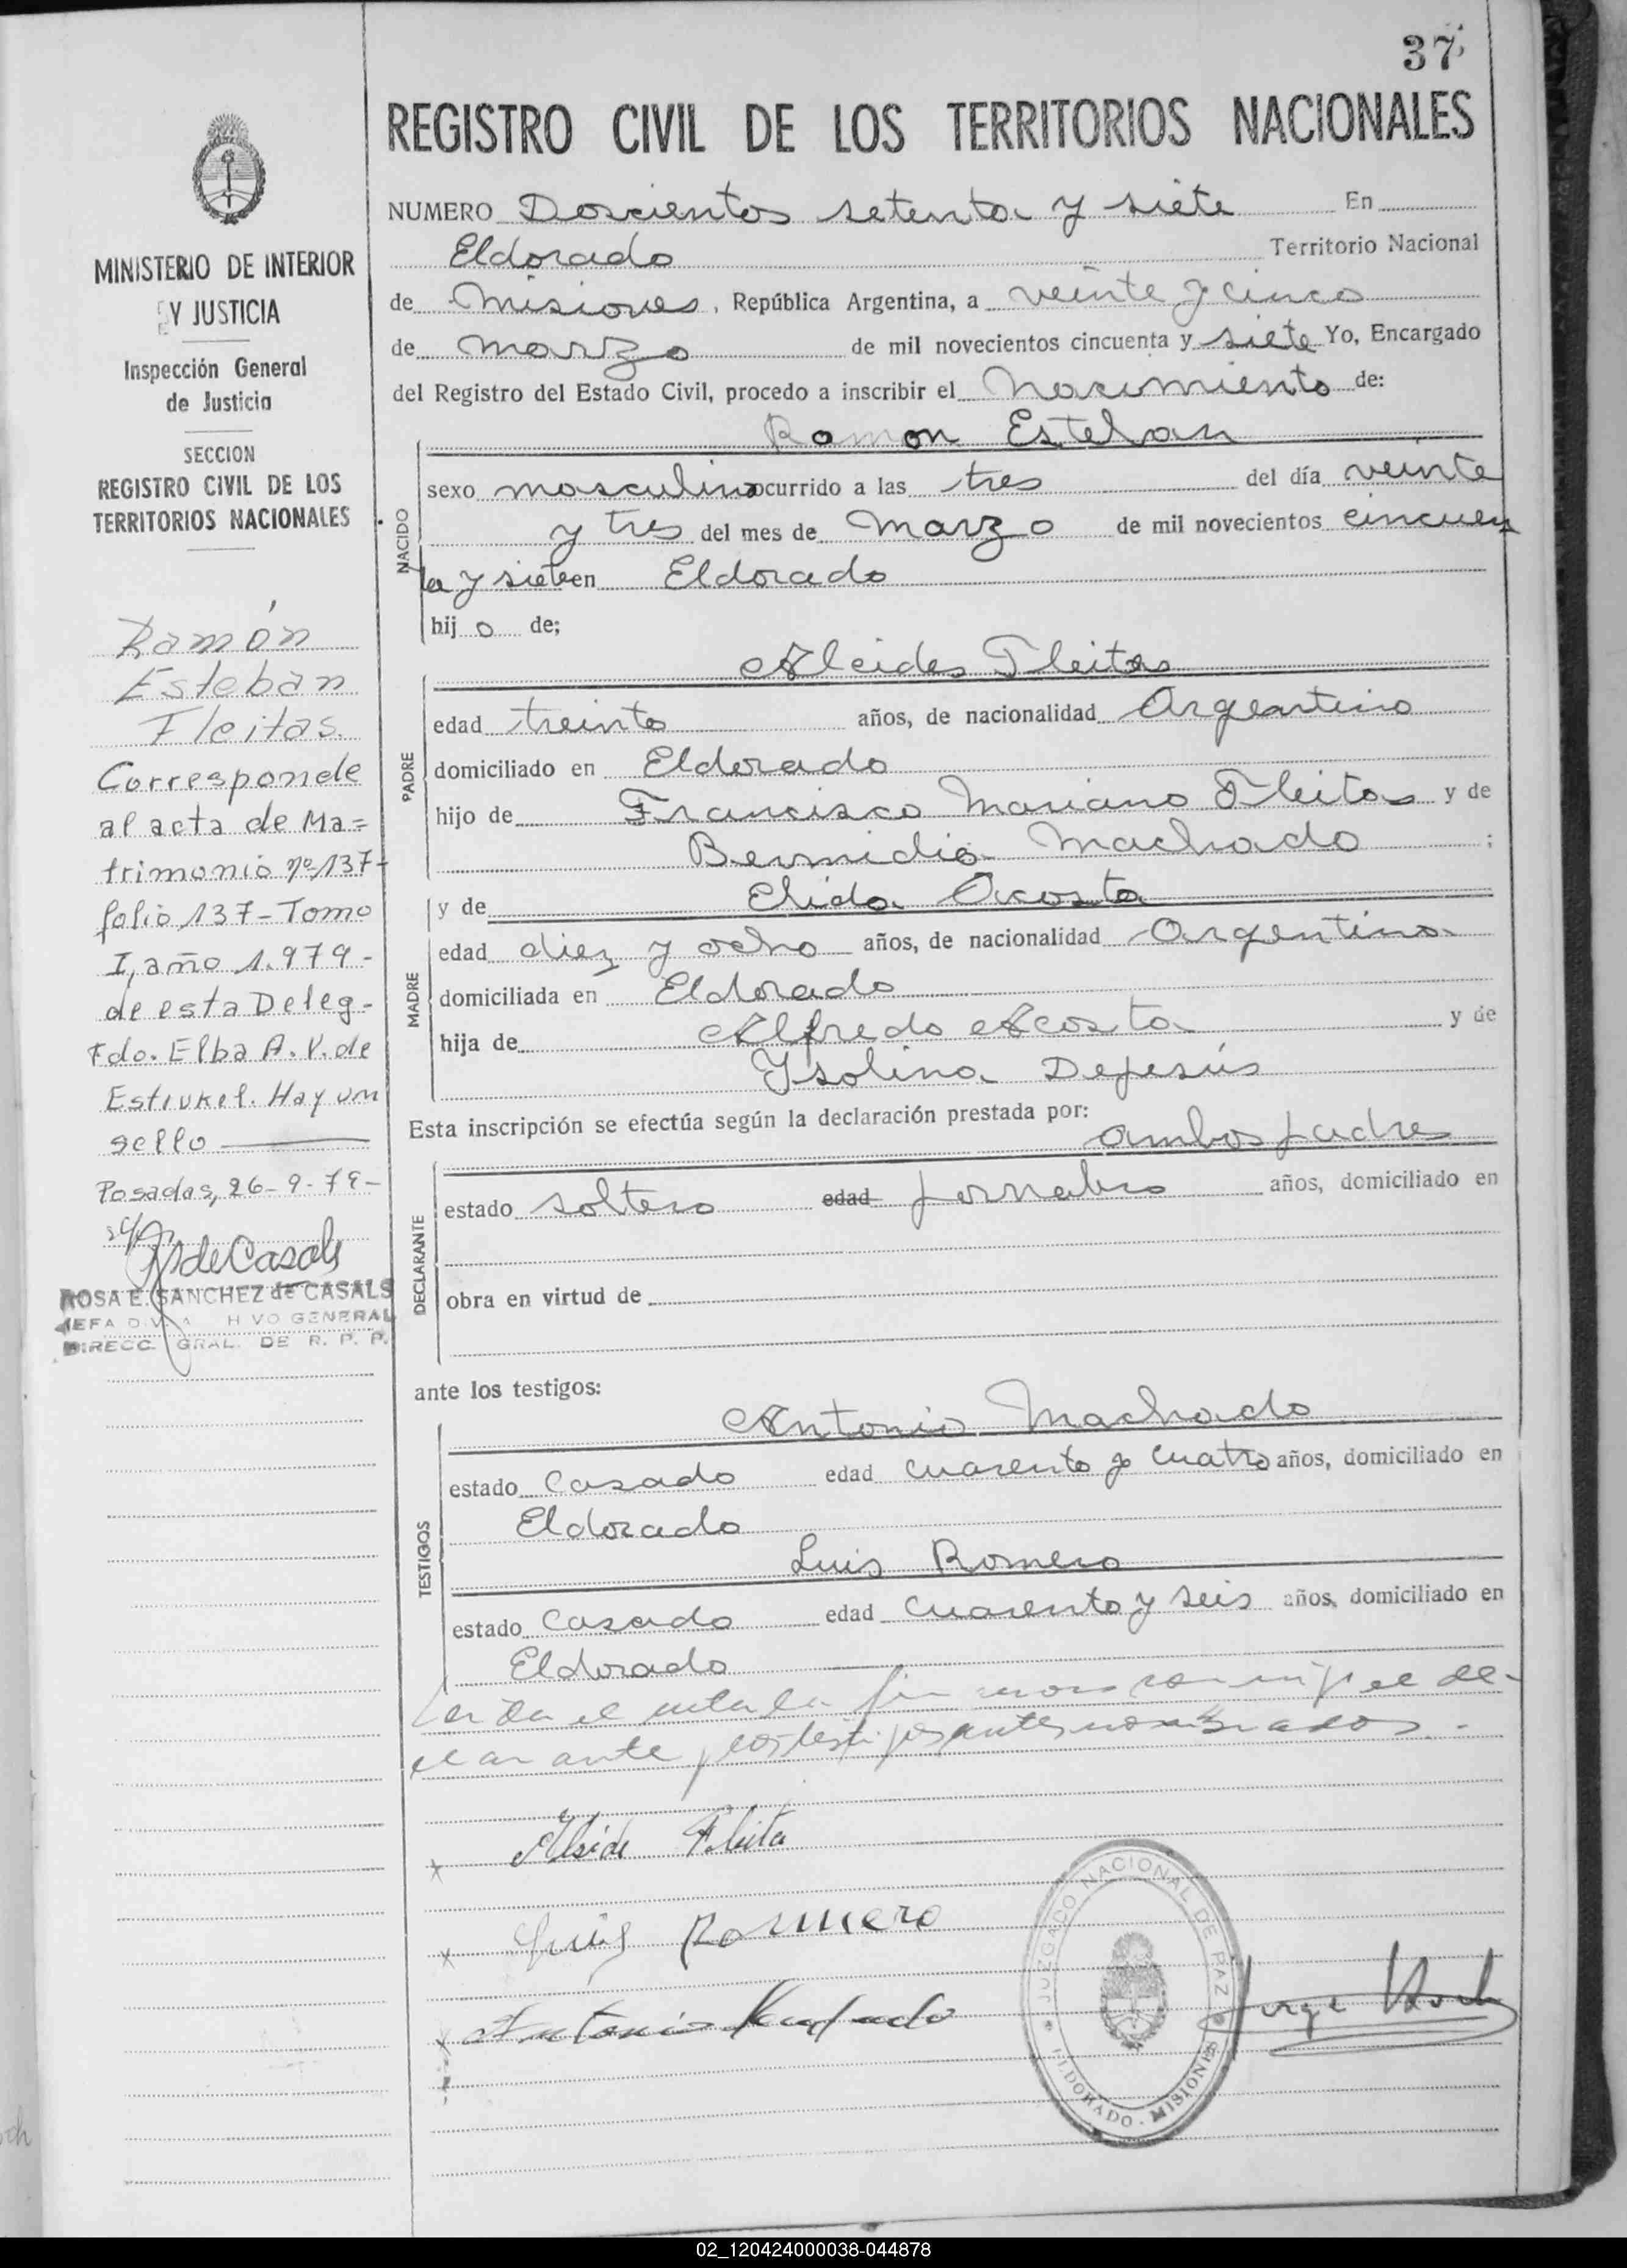 37
REGISTRO CIVIL DE LOS TERRITORIOS NACIONALES
MINISTERIO DE INTERIOR
Y JUSTICIA
Inspección General
de Justicia
SECCION
REGISTRO CIVIL DE LOS
TERRITORIOS NACIONALES
Ramón
Esteban
Fleitas.
Corresponde
al acta de Ma=
trimonio nº 137-
folio 137-Tomo
I, año 1.979-
de esta Deleg-
Fdo. Elba A. V. de
Hay un
sello
Posadas, 26-9-79-
ROSA E. SANCHEZ de CASALS
JEFA DIV. GENERAL
DIRECC. GRAL. DE R. P. P.
NUMERO Doscientos setenta y siete En
Eldorado Territorio Nacional
de Misiones, República Argentina, a veinte y cinco
de marzo de mil novecientos cincuenta y siete Yo, Encargado
del Registro del Estado Civil, procedo a inscribir el Nacimiento de:
Ramon Esteban
NACIDO
sexo masculino ocurrido a las tres del día veinte
y tres del mes de marzo de mil novecientos cincuen
ta y siete en Eldorado
hij o de;
Alcides Fleitas
PADRE
edad treinta años, de nacionalidad Argentino
domiciliado en Eldorado
hijo de Francisco Mariano Fleitas y de
Bermidia Machado ;
y de Elida Acosta
MADRE
edad diez y ocho años, de nacionalidad Argentina
domiciliada en Eldorado
hija de Alfredo Acosta y de
Ysolina Dejesús
Esta inscripción se efectúa según la declaración prestada por:
ambos padres
DECLARANTE
estado soltero edad jornalero años, domiciliado en
obra en virtud de
ante los testigos:
Antonio Machado
TESTIGOS
estado Casado edad cuarenta y cuatro años, domiciliado en
Eldorado
Luis Romero
estado Casado edad cuarenta y seis años, domiciliado en
Eldorado
Leida el acta la firmaron conmigo el de-
clarante y los testigos antes nombrados.-
x Alside Fleita
x Luis Rommero
x Antonio Machado
JUZGADO NACIONAL DE PAZ
ELDORADO - MISIONES
Jorge
02_120424000038-044878